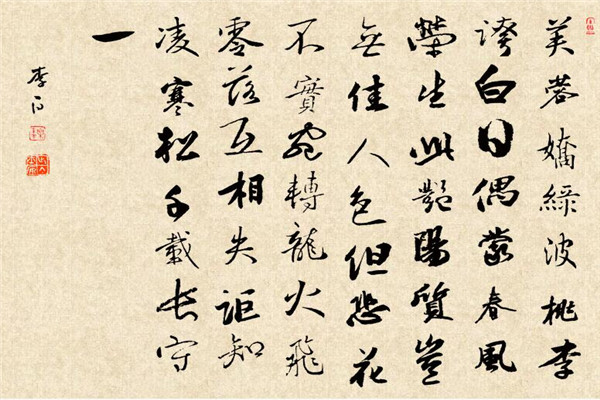 芙蓉嬌綠波桃李
誇白日偶蒙春風
榮生此豔陽質豈
無佳人色但恐花
不實宛轉龍火飛
零落互相失詎知
凌寒松千載長守
一
李白